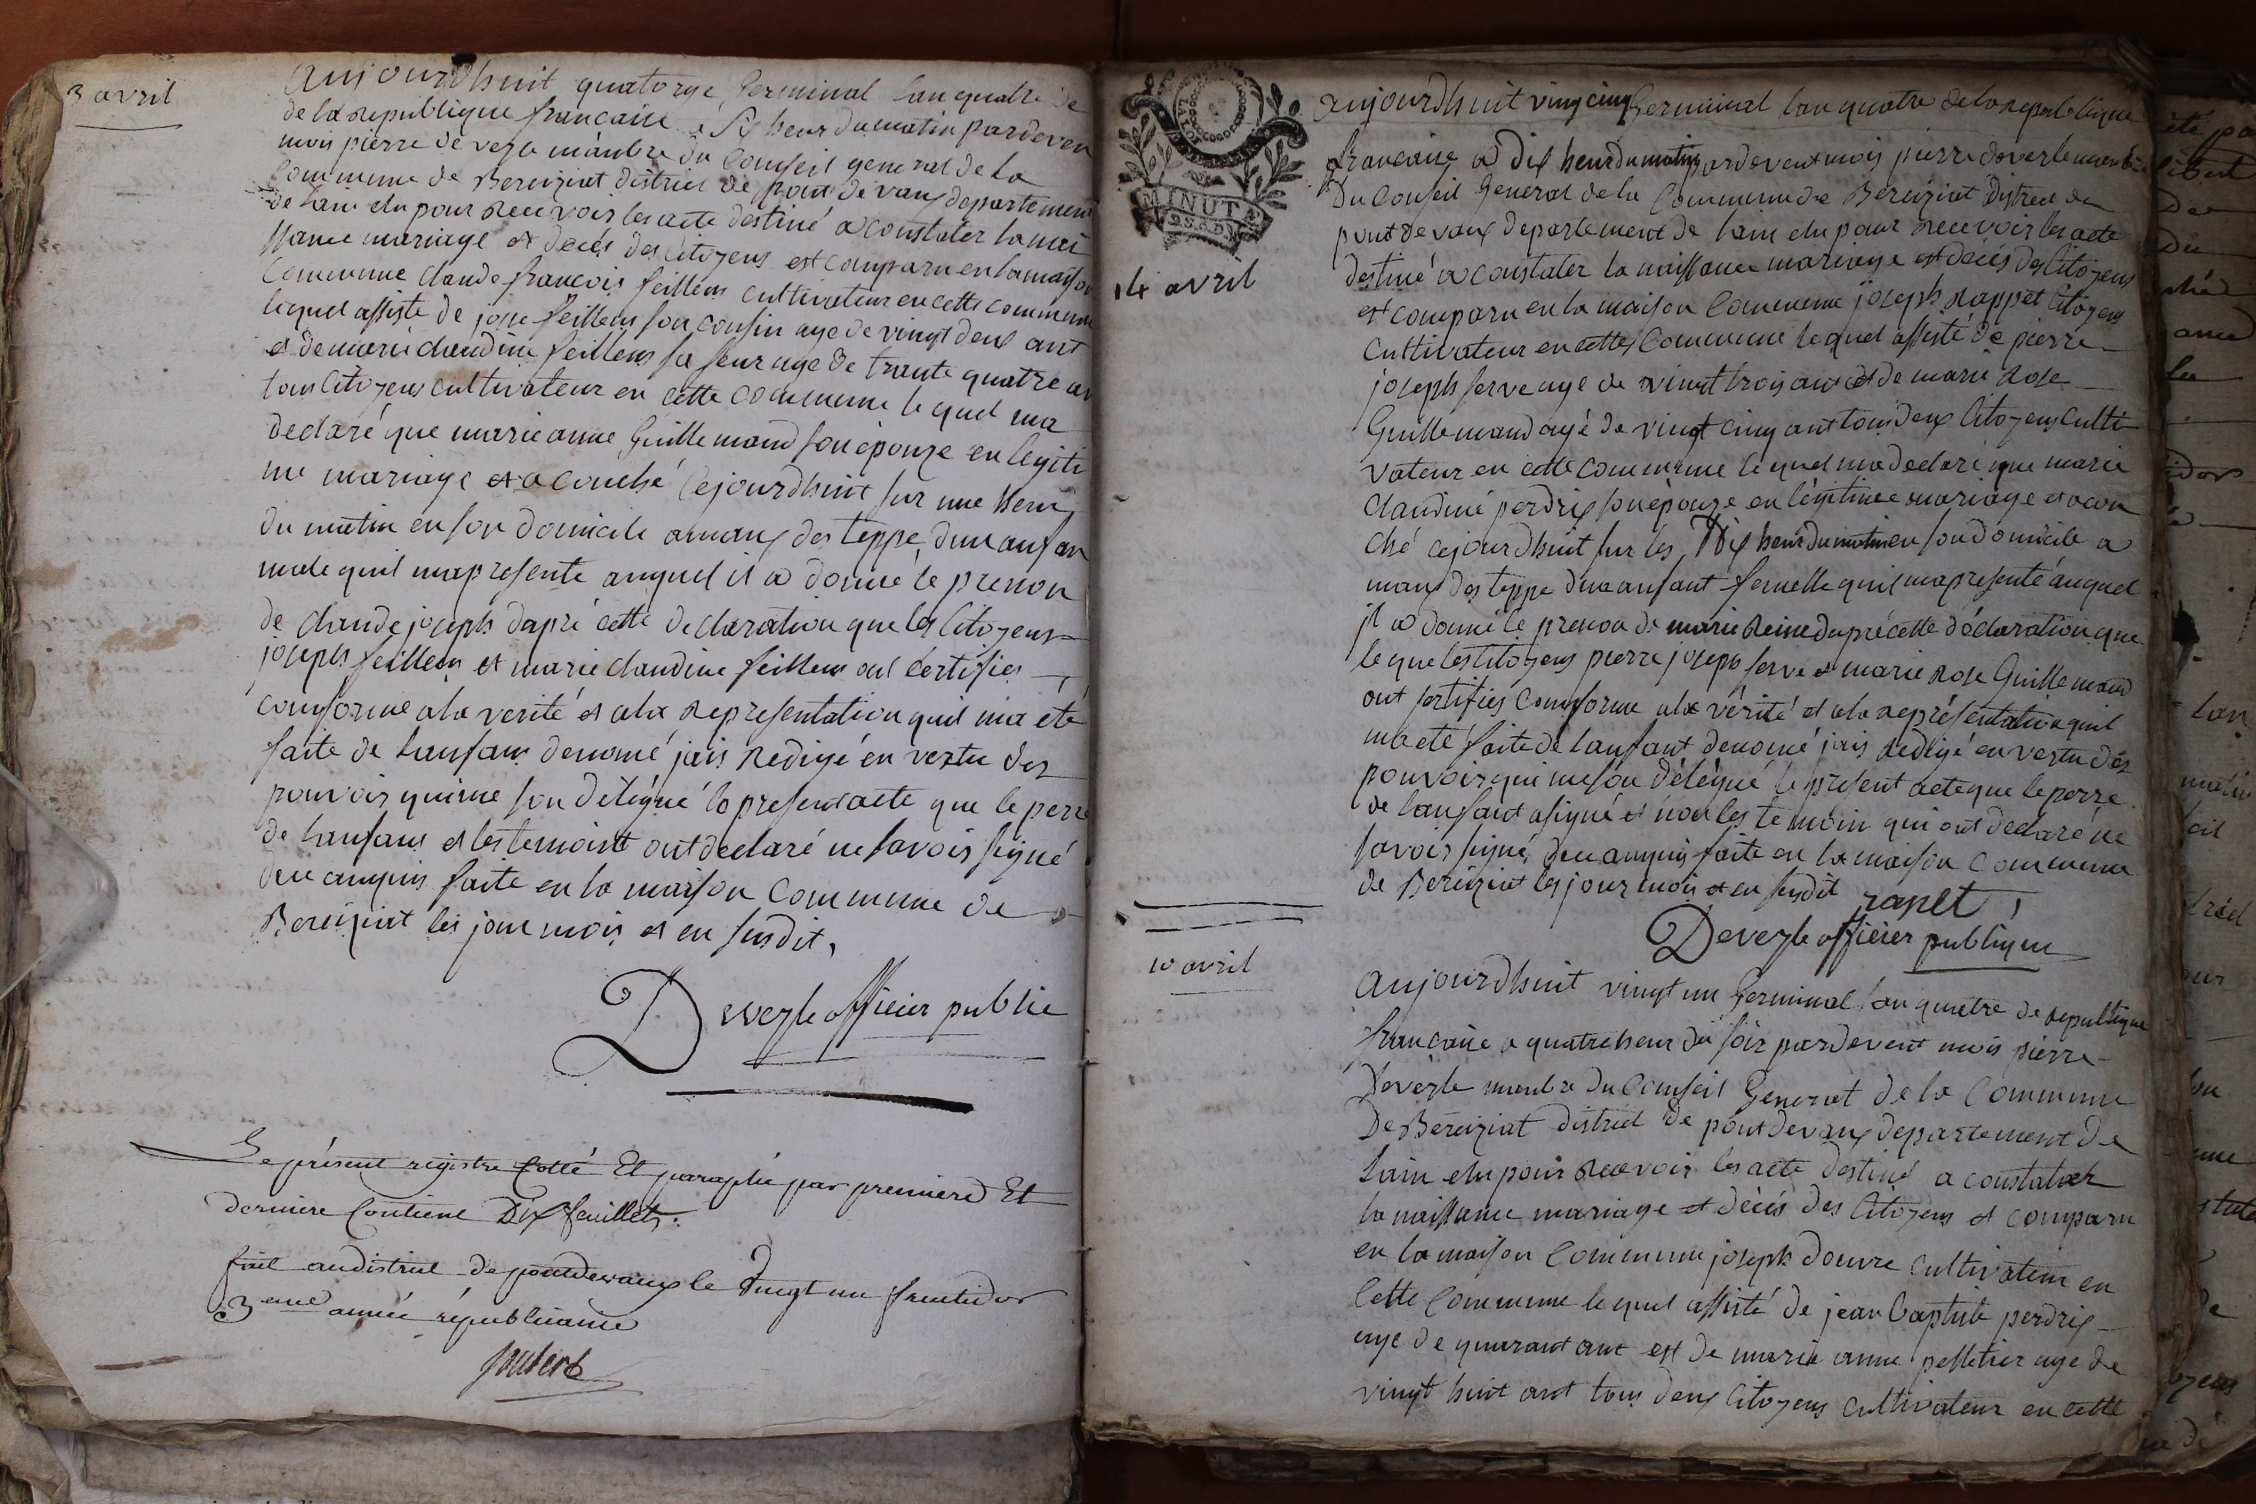 3 avril
aujourdhuit quatorze Germinal lan quatre de
de la republique francaise a Six heur du matin pardeven
mois pierre de veyle mambre du Conseil general de la
Commune de Bereiziat district de pont de vaux departement
de lain elu pour Recevoir les acte destiné a constater la nai
ssance mariage et decés des Citoyens est comparu en la maison
Commune claude francois feillens cultivateur en cette commune
lequel assiste de joseph feillens son cousin age de vingt deux ant
et de marie claudine feillens sa seur age de trante quatre an
tous Citoyens cultivateur en cette commune le quel ma
declaré que marie anne Guillemaud son épouze en legiti
me mariage et a couché Cejourdhuit sur une heur
du matin en son domicile a maux des teppe, dun anfan
male quil ma presenté auquel il a donné le prenon
de claude joseph dapré cette declaration que les Citoyens
joseph feillens et marie claudine feillens ont certifies
conforme a la verité et a la Representation quil ma été
faite de lanfans denomé jais Redigé en vertu des
pouvoir qui me son délégué le present acte que le perre
de lanfans et les temoint ont declaré ne savois signé
de ce anquis faite en la maison Commune de
Bereiziat les jour mois et en susdit,
Deveyle officier public
Le présent registre Cotté Et paraphé par premiere Et
derniere Contient Dix feuillets.
fait au district de pontdevaux le vingt un fructidor
3eme année républicaine
Joubert
MINUTE
14 avril
aujourdhuit vingt cinq Germinal lan quatre de la republique
francaise a Dix heur du matin pardevent mois pierre deveyle membre
Du Conseil General de la Commune de Bereiziat District de
pont de vaux departement de lain elu pour Recevoir les acte
destiné a constater la naissance mariage et décés des Citoyens
est comparu en la maison Commune joseph Rappet Citoyens
cultivateur en cette Commune lequel assisté de pierre
joseph serve age de vingt trois ant et de marie Rose
Guillemaud agé de vingt cinq ant tous deux Citoyens culti
vateur en cette commune le quel ma declaré que marie
claudine perdrix son épouze en légitime mariage et a cou
ché cejourdhuit sur les Dix heur du matin en son domicile a
maux des teppe dune anfant femelle quil ma presenté auquel
il a donné le prenon de marie Reine dapré cette déclaration que
le que les Citoyens pierre joseph serve et marie Rose Guillemaud
ont sertifiés comforme a la vérité et a la représentation quil
ma eté faite de lanfant denomé jais Redigé en vertu des
pouvoir qui me son délégué le present acte que le perre
de lanfant a signé et non les temoin qui ont declaré ne
savois signé, de ce anquis faite en la maison Commune
de Bereiziat les jour mois et en susdit rapet
Deveyle officier publique
10 avril
aujourdhuit vingt un Germinal lan quatre de republique
francaise a quatre heur du soir pardevent mois pierre
Deveyle membre du Conseil General de la Commune
De Béreiziat district de pont de vaux departement de
lain elu pour Recevoir les acte destiné a constater
la naissance mariage et décés des Citoyens est comparu
en la maison Commune joseph douvre cultivateur en
Cette Commune lequel assisté de jean baptiste perdrix
age de quarant ant est de marie anne pelletier age de
vingt huit ant tous deux Citoyens cultivateur en cette